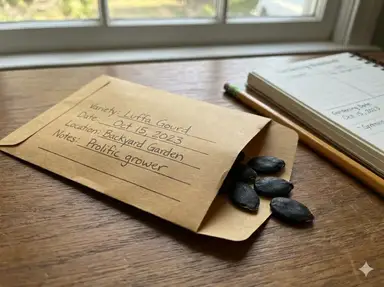 Variety: Luffa Gourd
Date: Oct 15, 2023
Location: Backyard Garden
Notes: Prolific grower
Oct 15, 2023